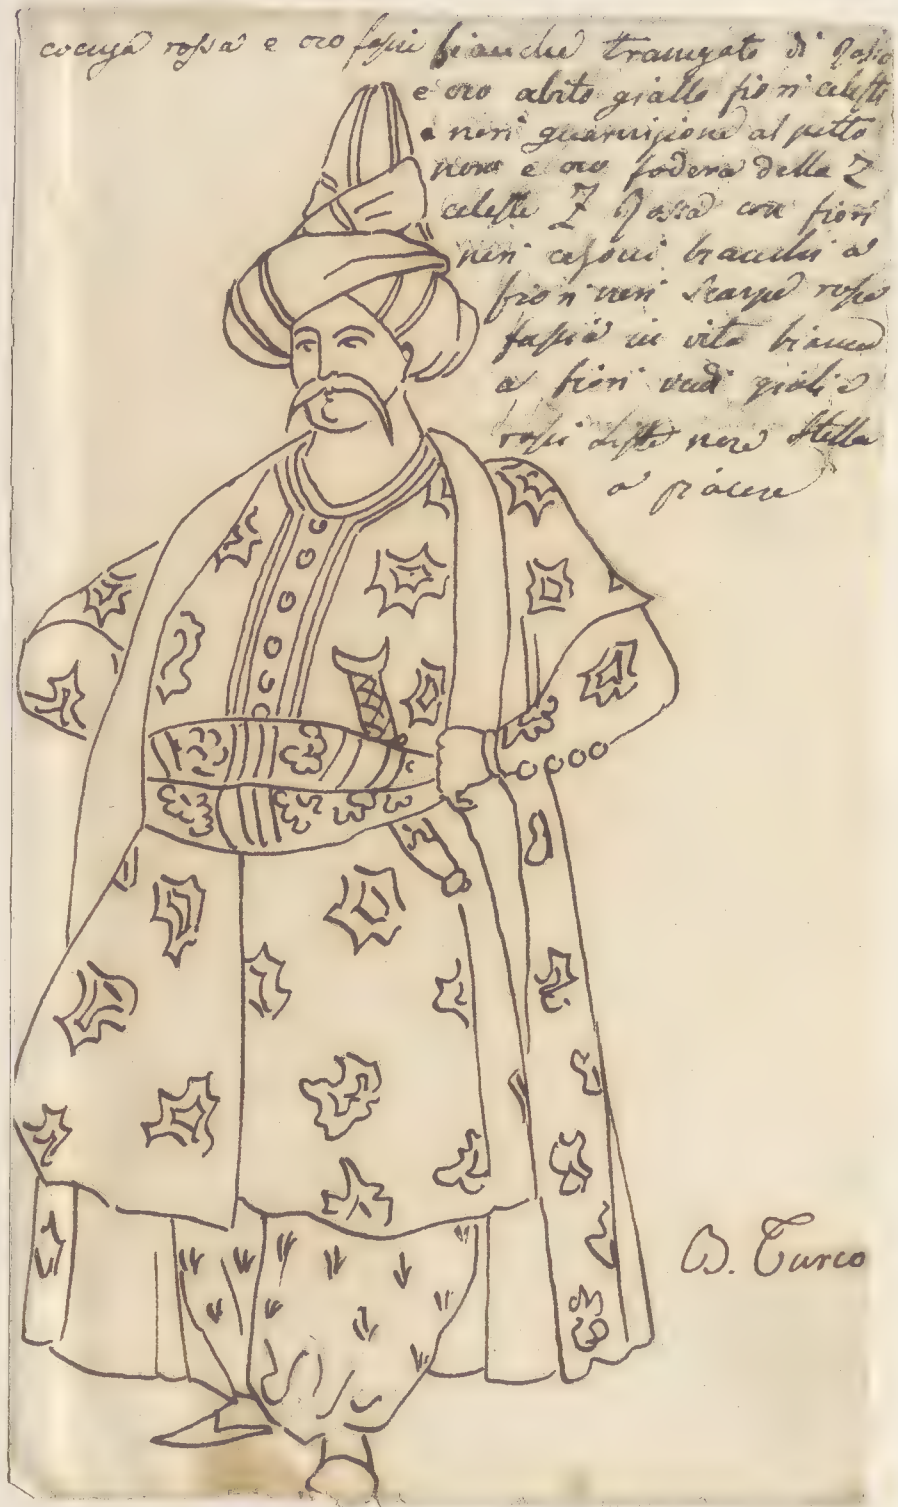 rossa e oro bianche di
e oro abito giallo fiori celesti
e neri guarnizione al petto
nero e oro fodera della Z
celeste Z Rossa con fiori
neri bianchi a
fiori neri scarpe rosse
fassia in vita bianca
a fiori verdi giali e
rossi liste nere stella
a piacere
B. Turco